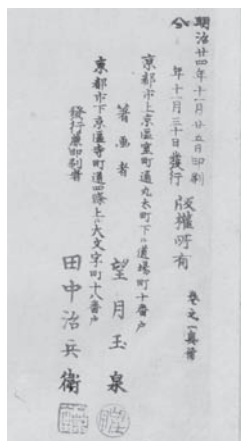 明治廿四年十一月廿五日印刷
仝 年十一月三十日發行 版權所有
巻之一奥附
京都市上京區室町通丸太町下ル道場町十番戸
著画者 望月玉泉
京都市下京區寺町通四條上ル大文字町十八番戸
發行兼印刷者 田中治兵衛